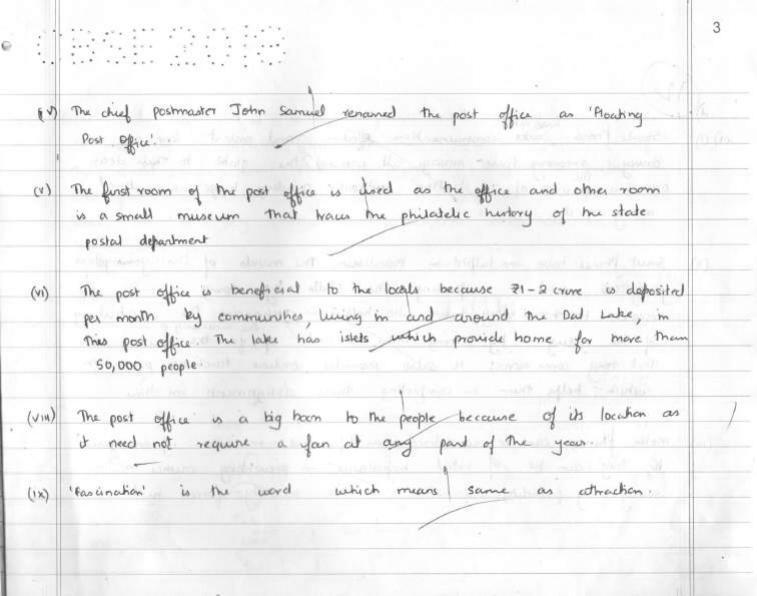 3
CBSE 2018
iv) The chief Postmaster John Samuel renamed the post office as 'Floating
Post Office'.
(v) The first room of the post office is used as the office and other room
is a small museum that traces the philatelic history of the state
postal department
(vi) The post office is beneficial to the locals because ₹1-2 crore is deposited
per month by communities, living in and around the Dal Lake, in
this post office. The lake has islets which provide home for more than
50,000 people
(viii) The post office is a big boon to the people because of its location as
it need not require a fan at any part of the year.
(ix) 'Fascination' is the word which means same as attraction.